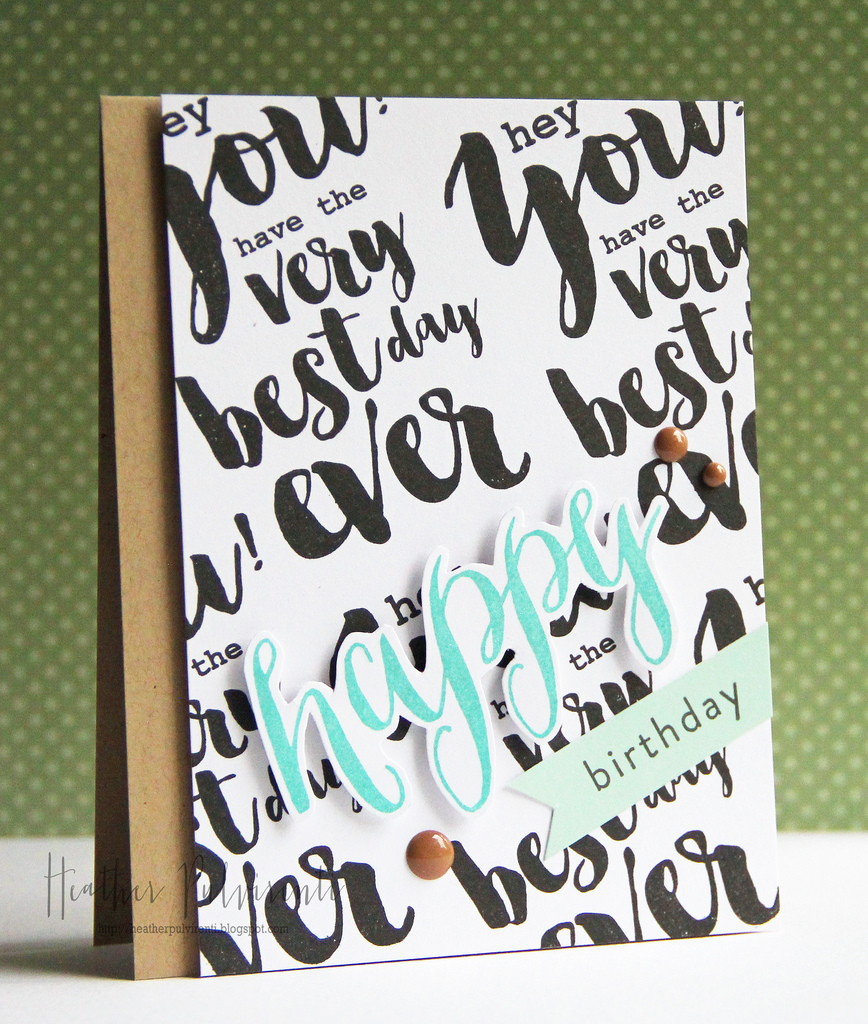 ey
you!
have the
very
best day
ever
hey
you!
have the
very
best
eve
u!
the
ery
st day
ever
he
the
very
best day
ever
happy
birthday
Heather Pulvirenti
http://heatherpulvirenti.blogspot.com